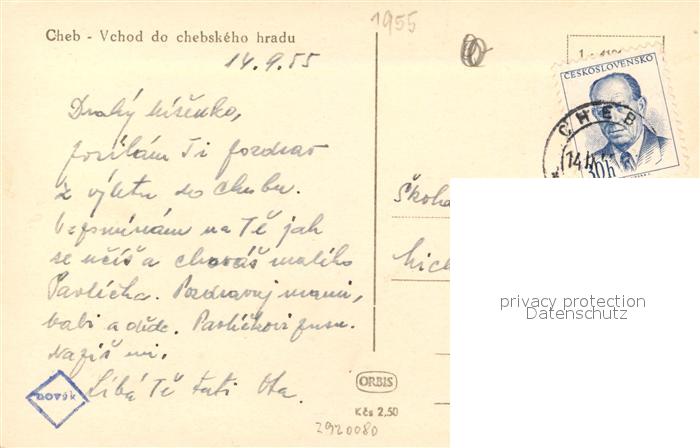 1955
Cheb - Vchod do chebského hradu
14.9.55
ČESKOSLOVENSKO
CHEB
30h
Drahý Míšenko,
posílám Ti pozdrav
z výletu do Chebu.
Vzpomínám na Tě jak
se učíš a chováš malého
Pavlíčka. Pozdravuj mami,
babi a dědu. Pavlíčkovi pusu.
Napiš mi.
Líbá Tě tati Ota.
privacy protection
Datenschutz
ORBIS
Kčs 2,50
2920080